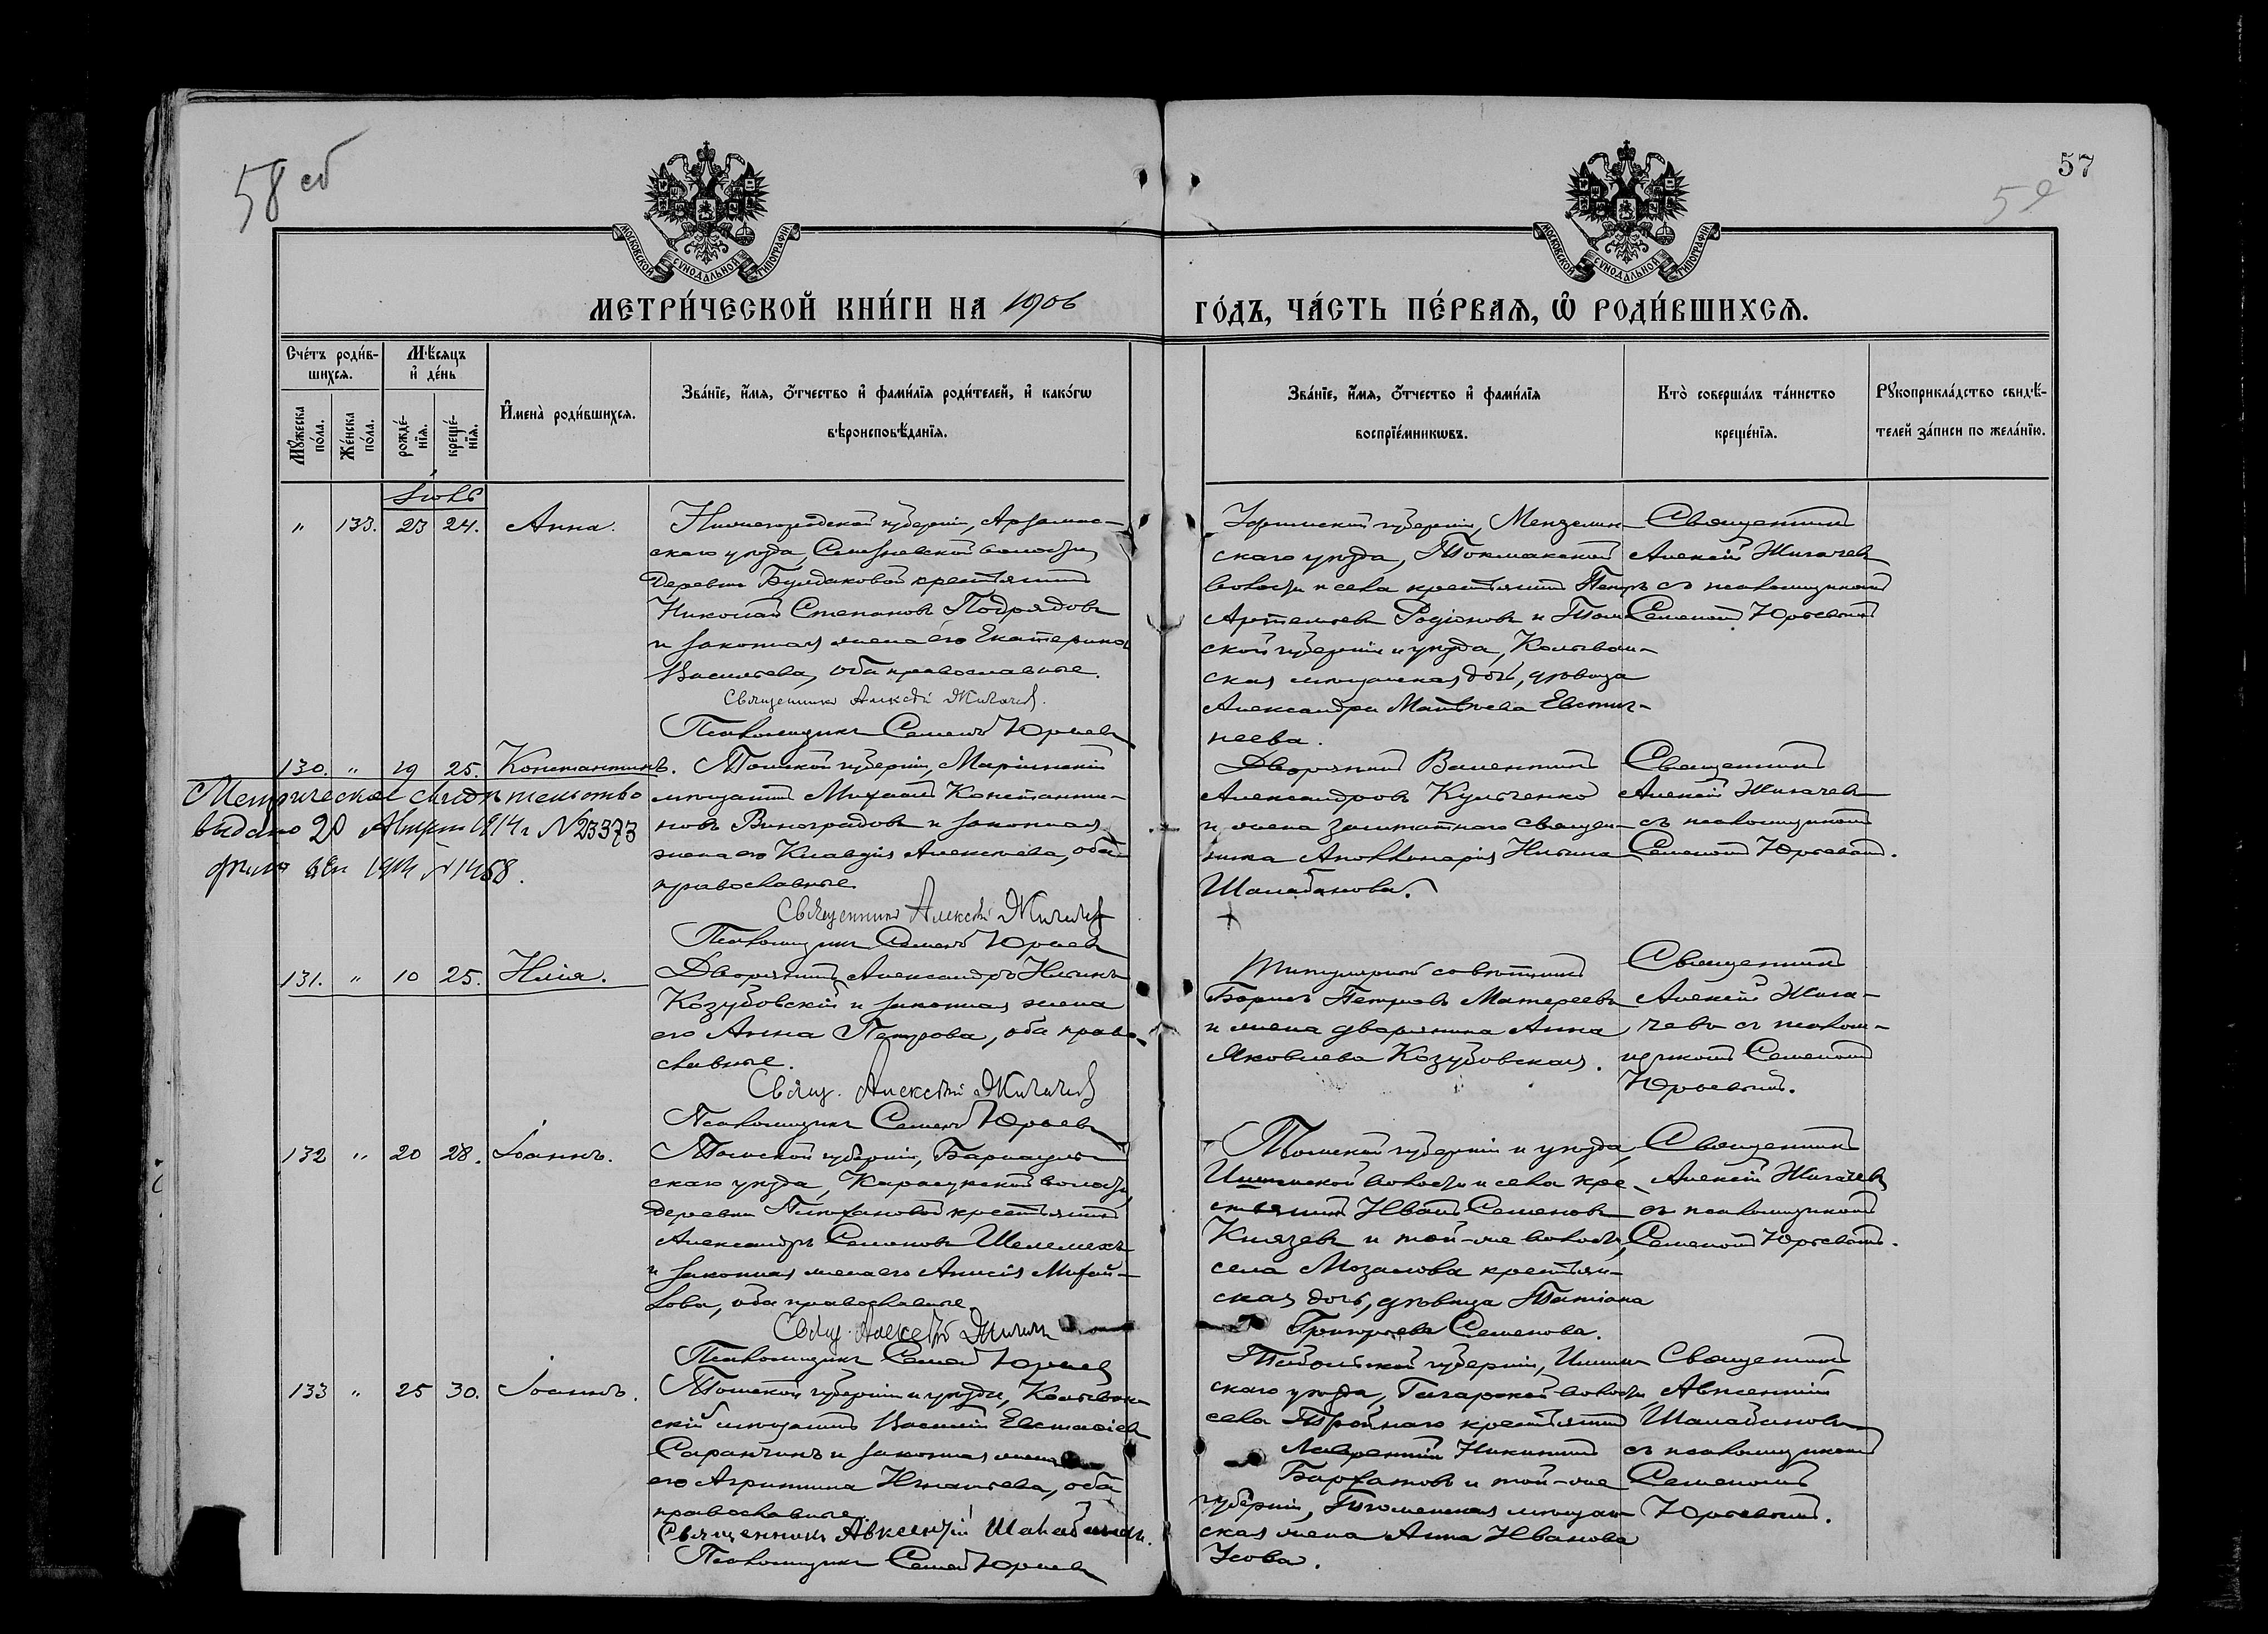 58 об
57
МОСКОВСКОЙ СУНОДАЛЬНОЙ ТИПОГРАФІИ
МОСКОВСКОЙ СУНОДАЛЬНОЙ ТИПОГРАФІИ
МЕТРИ́ЧЕСКОЙ КНИ́ГИ НА 1906
ГО́ДЪ, ЧА́СТЬ ПЕ́РВАѦ, Ѽ РОДИ́ВШИХСѦ.
Сче́тъ роди́в-
шихсѧ.
Мѣ́сѧцъ
и҆ де́нь
Мꙋ́жеска по́ла.
Же́нска по́ла.
рожде́-нїѧ.
креще́-нїѧ.
И҆мена̀ роди́вшихсѧ.
Зва́нїе, и҆́мѧ, ѻ҆́тчество и҆ фами́лїѧ роди́телей, и҆ како́гѡ
вѣроисповѣ́данїѧ.
Зва́нїе, и҆́мѧ, ѻ҆́тчество и҆ фами́лїѧ
воспрїе́мникѡвъ.
Кто̀ соверша́лъ та́инство
креще́нїѧ.
Рꙋкоприкла́дство свидѣ́-
телей за́писи по жела́нїю.
Іюль
" 133. 23 24. Анна.
Нижегородской губерніи, Арзамас-
скаго уѣзда, волости,
деревни Булдаковой крестьянинъ
Николай Степановъ Подрядовъ
и законная жена его Екатерина
Васильева, оба православные.
Священникъ Алексѣй Жигачев.
Псаломщикъ Семенъ Юрьевъ
Уфимской губерніи, Мензелин-
скаго уѣзда, Токмакской
волости и села крестьянинъ Петръ
Артемьевъ Родіоновъ и Том-
ской губерніи и уѣзда, Колыван-
ская мѣщанская дочь, дѣвица
Александра Матвѣева Евстиг-
неева.
Священникъ
Алексій Жигачевъ
съ псаломщикомъ
Семеномъ Юрьевымъ
130. " 19 25. Константинъ.
Метрическое свидѣтельство
выдано 20 1914 г. № 23373
1914 № 1468.
Томской губерніи, Маріинскій
мѣщанинъ Михаилъ Константи-
новъ Виноградовъ и законная
жена его Клавдія Алексѣева, оба
православные
Священникъ Алексѣй Жигачев
Псаломщикъ Семенъ Юрьевъ
Дворянинъ Валентинъ
Александровъ Кульченко
и жена заштатнаго священ-
ника Аполлинарія Ильина
Шалабанова.
Священникъ
Алексій Жигачевъ
съ псаломщикомъ
Семеномъ Юрьевымъ.
131. " 10 25. Илія.
Дворянинъ Александръ Ильинъ
Козубовскій и законная жена
его Анна Петрова, оба право-
славные.
Свящ. Алексѣй Жигачев
Псаломщикъ Семенъ Юрьевъ
Титулярный совѣтникъ
Борисъ Петровъ Матереевъ
и жена дворянина Анна
Яковлева Козубовская.
Священникъ
Алексій Жига-
чевъ съ псалом-
щикомъ Семеномъ
Юрьевымъ.
132 " 20 28. Іоаннъ.
Томской губерніи, Барнауль-
скаго уѣзда, Карасукской волости,
деревни крестьянинъ
Александръ Семеновъ Шелемехъ
и законная жена его Анисія Михай-
лова, оба православные
Свящ. Алексѣй Жигачев
Псаломщикъ Семенъ Юрьевъ
Томской губерніи и уѣзда
Ишимской волости и села кре-
стьянинъ Иванъ Семеновъ
Князевъ и той-же волости,
села Мозалова крестьян-
ская дочь, дѣвица Татіана
Григорьева Семенова.
Священникъ
Алексій Жигачевъ
съ псаломщикомъ
Семеномъ Юрьевымъ.
133 " 25 30. Іоаннъ.
Томской губерніи и уѣзда, Колыван-
скій мѣщанинъ Василій Евстафіевъ
Саранчинъ и законная жена
его Агриппина Игнатьева, оба
православные.
Священникъ Авксентій Шалабановъ.
Псаломщикъ Семенъ Юрьевъ
Тобольской губерніи, Ишим-
скаго уѣзда, Гагарской волости,
села крестьянинъ
Лаврентій Никитинъ
Бархатовъ и той-же
губерніи, Тюменская мѣщан-
ская жена Анна Иванова
Усова.
Священникъ
Авксентій
Шалабановъ
съ псаломщикомъ
Семеномъ
Юрьевымъ.